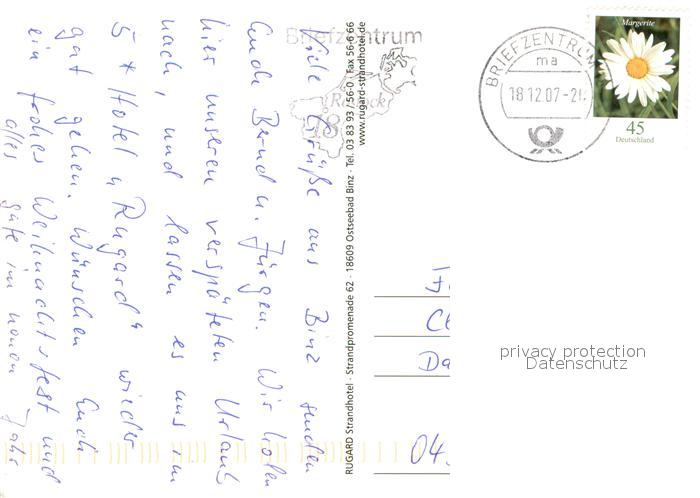 Viele Grüße aus Binz senden
Euch Bernd u. Jürgen. Wir holen
hier unseren verspäteten Urlaub
nach, und lassen es uns im
5 * Hotel „Rugard“ wieder
gut gehen. Wünschen Euch
ein frohes Weihnachtsfest und
alles gute im neuen Jahr
RUGARD Strandhotel · Strandpromenade 62 · 18609 Ostseebad Binz · Tel. 03 83 93 / 56-0 · Fax 56-6 66
www.rugard-strandhotel.de
Briefzentrum
18
BRIEFZENTRUM
ma
18.12.07-21
Margerite
45
Deutschland
Da
04.
privacy protection
Datenschutz